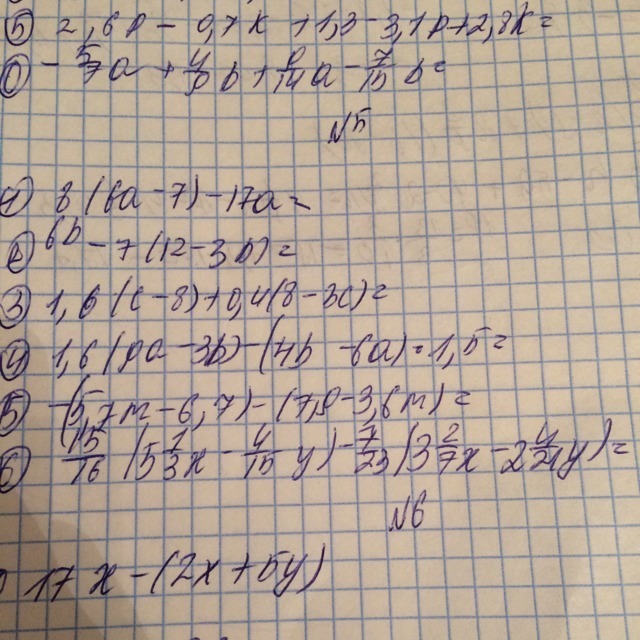 ⑤ 2,6p - 0,7k + 1,3 - 3,1p + 2,8k =
⑥ - 5/7 a + 4/5 b + 8/14 a - 7/15 b =
№5
① 8 (6a - 7) - 17a =
② 6b - 7 (12 - 3b) =
③ 1,6 (c - 8) + 0,4 (8 - 3c) =
④ 1,6 (8a - 3b) - (4b - 6a) = 1,5 =
⑤ - (5,7m - 6,7) - (7,8 - 3,6m) =
⑥ 15/16 (5 1/3 x - 4/15 y) - 7/23 (3 2/7 x - 2 4/21 y) =
№6
17x - (2x + 5y)